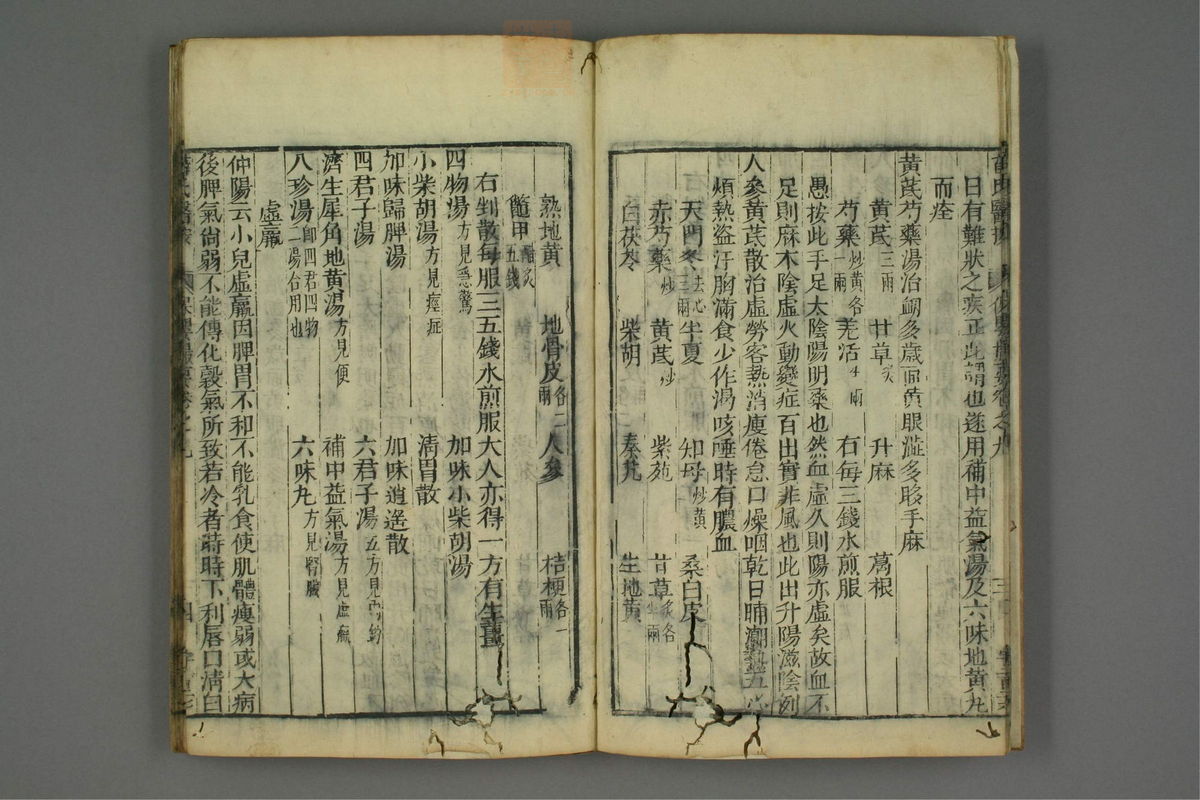 日有難狀之疾正此謂也遂用補中益氣湯及六味地黄丸
而痊
黄芪芍藥湯治衂多歲面黄眼澁多眵手麻
黄芪三兩 甘草炙 升麻 葛根
芍藥炒黄各一兩 羌活半兩 右每三錢水煎服
愚按此手足太陰陽明藥也然血虛久則陽亦虛矣故血不
足則麻木陰虛火動變症百出實非風也此出升陽滋陰例
人參黄芪散治虛勞客熱消瘦倦怠口燥咽乾日晡潮熱五心
煩熱盜汗胸滿食少作渴咳唾時有膿血
天門冬去心三兩 半夏 知母炒黄 桑白皮
赤芍藥炒 黄芪炒 紫菀 甘草炙各半兩
白茯苓 柴胡 秦艽 生地黄
熟地黄 地骨皮各二兩 人參 桔梗各一兩
鱉甲醋炙五錢
右剉散每服三五錢水煎服大人亦得一方有生薑
四物湯方見急驚 加味小柴胡湯
小柴胡湯方見痙症 淸胃散
加味歸脾湯 加味逍遙散
四君子湯 六君子湯五方見
濟生犀角地黄湯方見便 補中益氣湯方見虛羸
八珍湯即四君四物二湯合用也 六味丸方見腎臟
虛羸
仲陽云小兒虛羸因脾胃不和不能乳食使肌體瘦弱或大病
後脾氣尙弱不能傳化穀氣所致若冷者時時下利唇口淸白